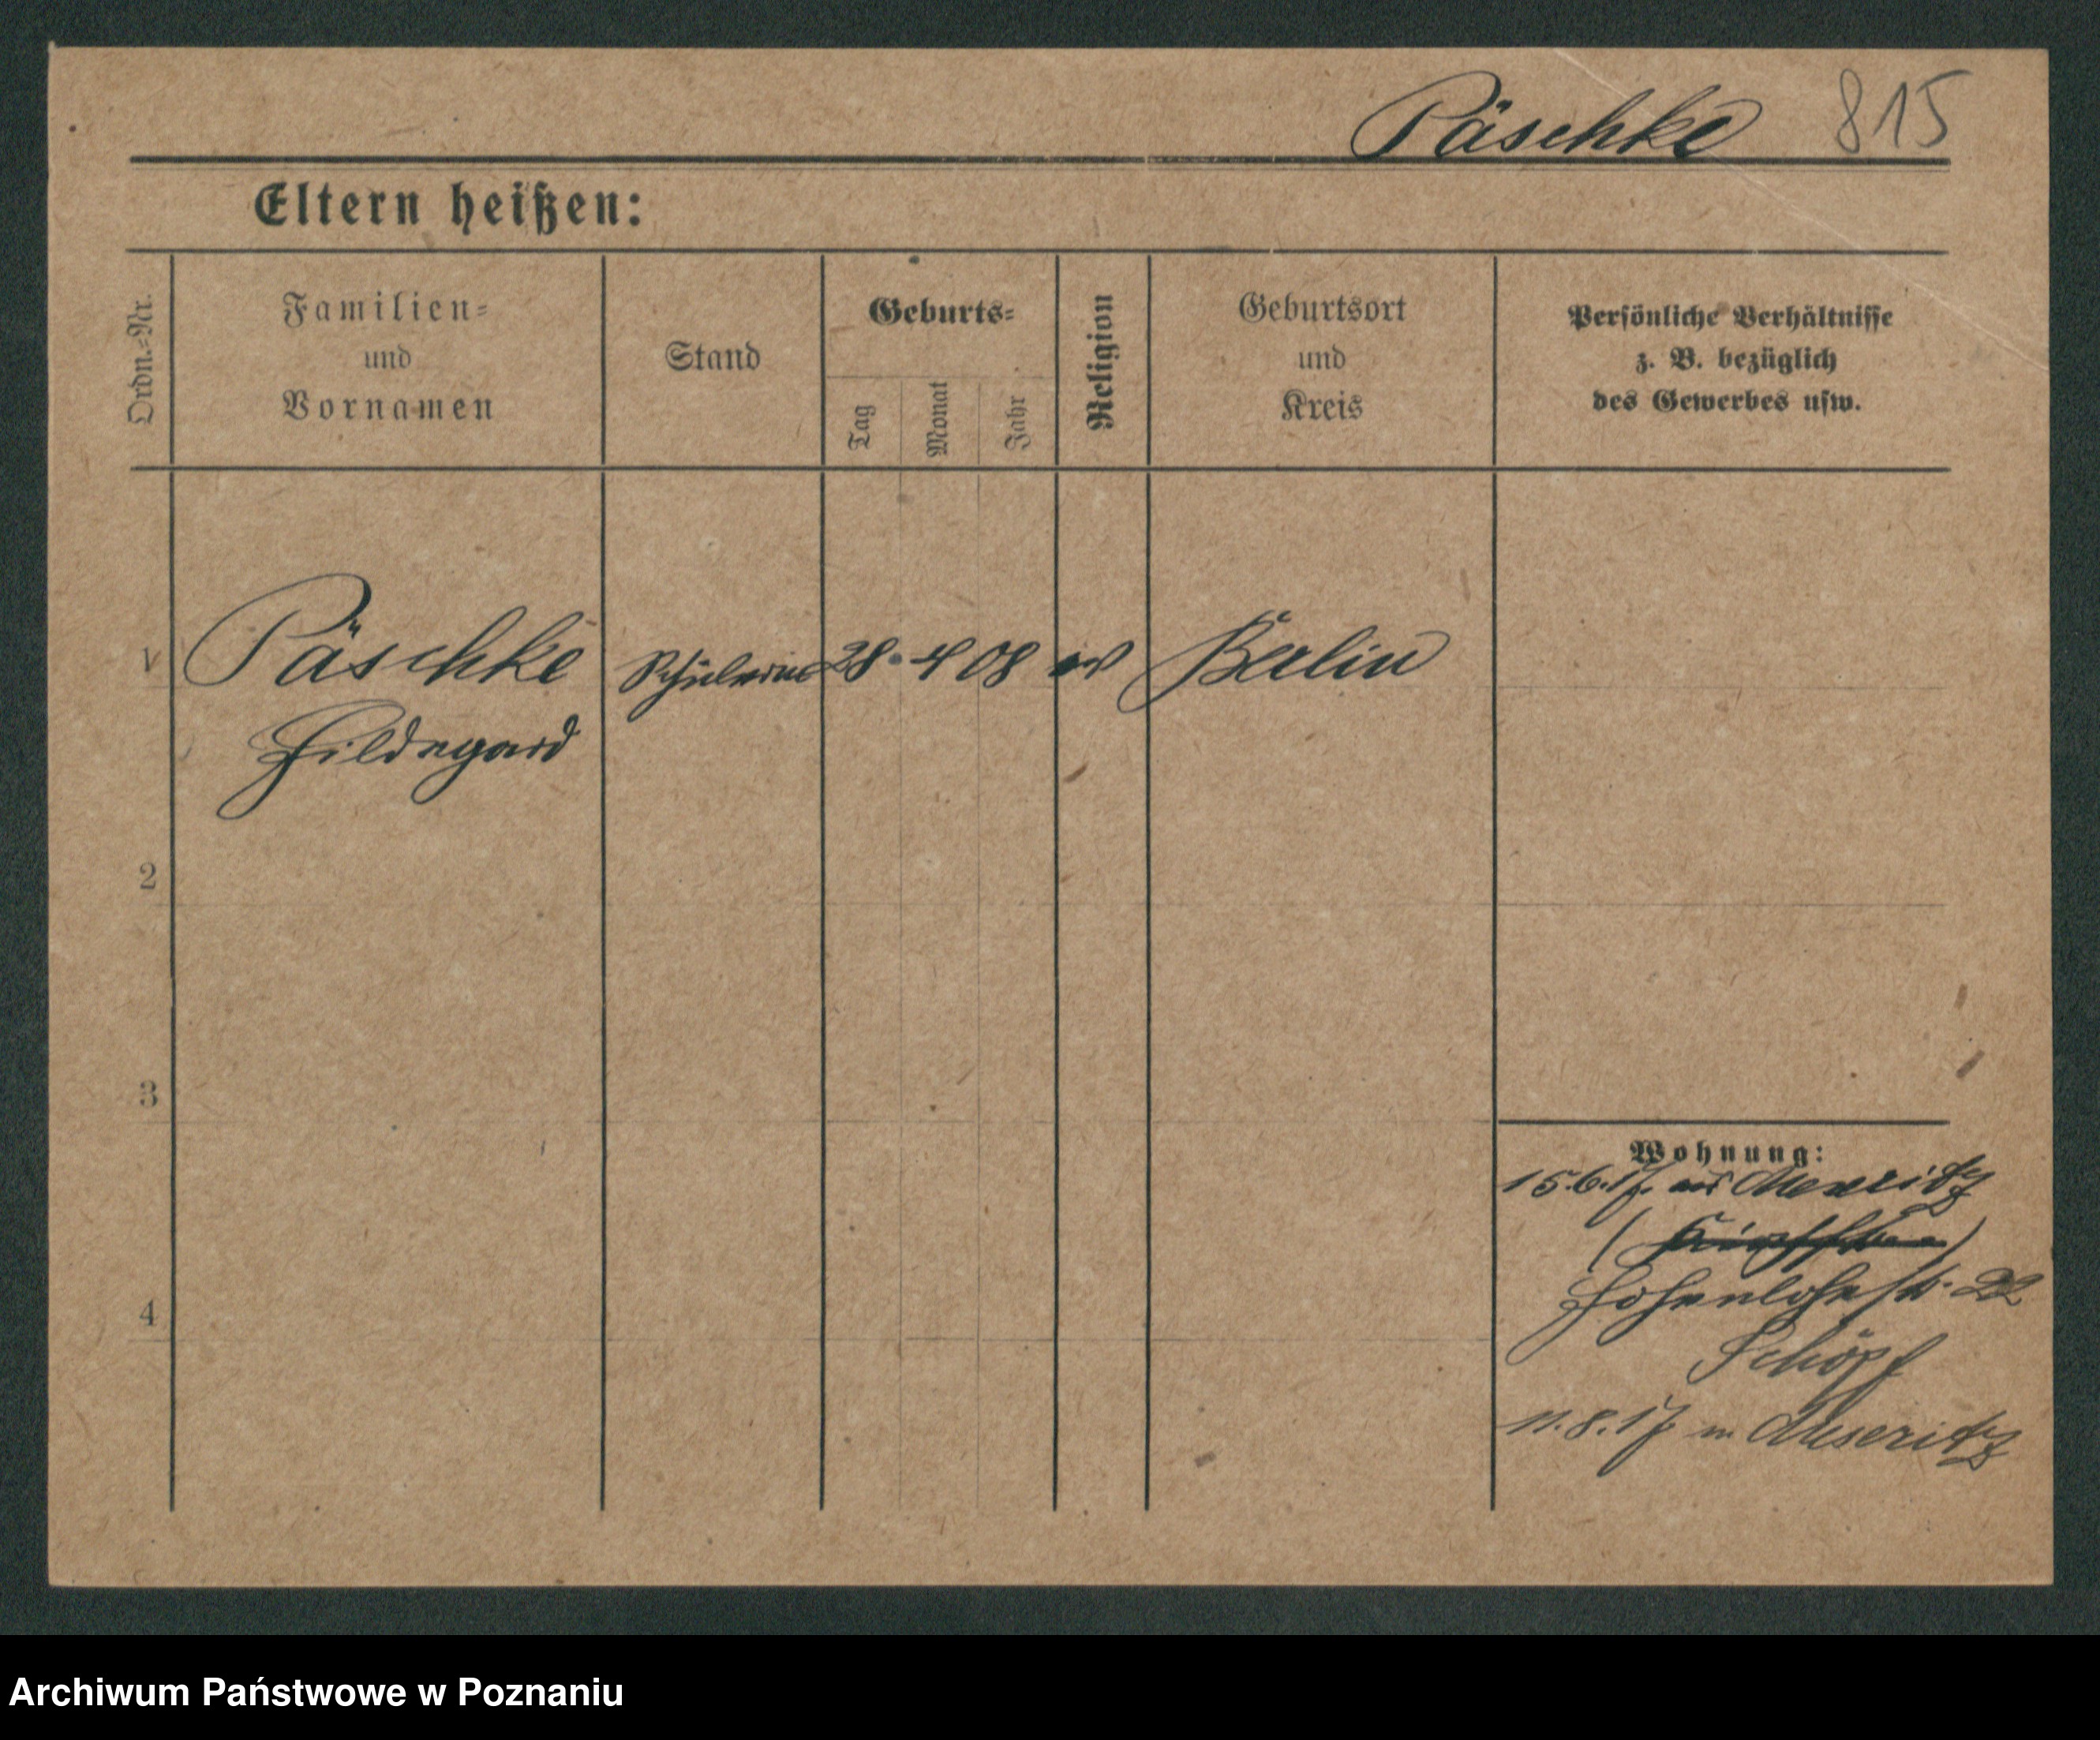 Päschke 815
Eltern heißen:
Ordn.-Nr.
Familien-
und
Vornamen
Stand
Geburts-
Tag
Monat
Jahr
Religion
Geburtsort
und
Kreis
Persönliche Verhältnisse
z. B. bezüglich
des Gewerbes usw.
1 Päschke Schülerin 28. 4 08 ev Berlin
Hildegard
2
3
4
Wohnung:
15.6.17. aus Meseritz
Hohenlohestr. 22
Schöpf
11.8.17 n. Meseritz
Archiwum Państwowe w Poznaniu